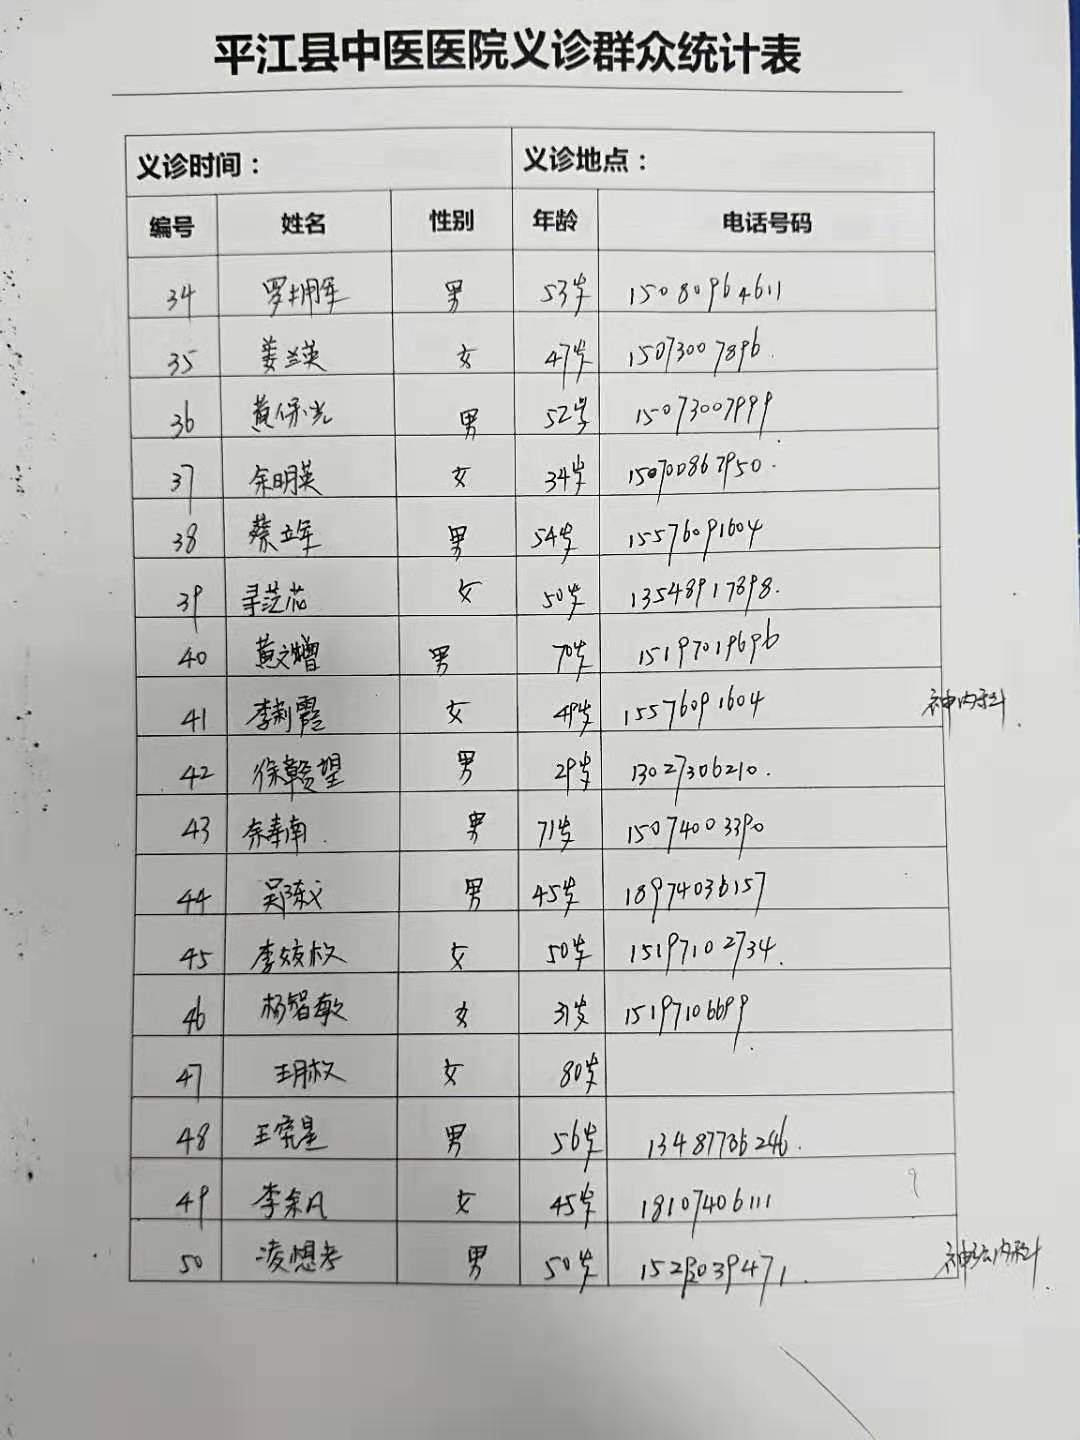 平江县中医医院义诊群众统计表
义诊时间： 义诊地点：
编号 姓名 性别 年龄 电话号码
34 罗拥军 男 53岁 15080964611
35 姜兰英 女 47岁 15073007896.
36 黄保光 男 52岁 15073007999
37 余明英 女 34岁 150700867950.
38 蔡立军 男 54岁 15576091604
39 寻芷芯 女 50岁 13548917898.
40 黄文增 男 70岁 15197019696
41 李利霞 女 49岁 15576091604 神内科
42 徐赣望 男 29岁 13027306210.
43 余寿南 男 71岁 15074003390
44 男 45岁 18974036157
45 女 50岁 15197102734.
46 杨智敏 女 31岁 15197106699
47 女 80岁
48 男 56岁 13487736246.
49 李余凡 女 45岁 18107406111
50 凌想考 男 50岁 神经内科